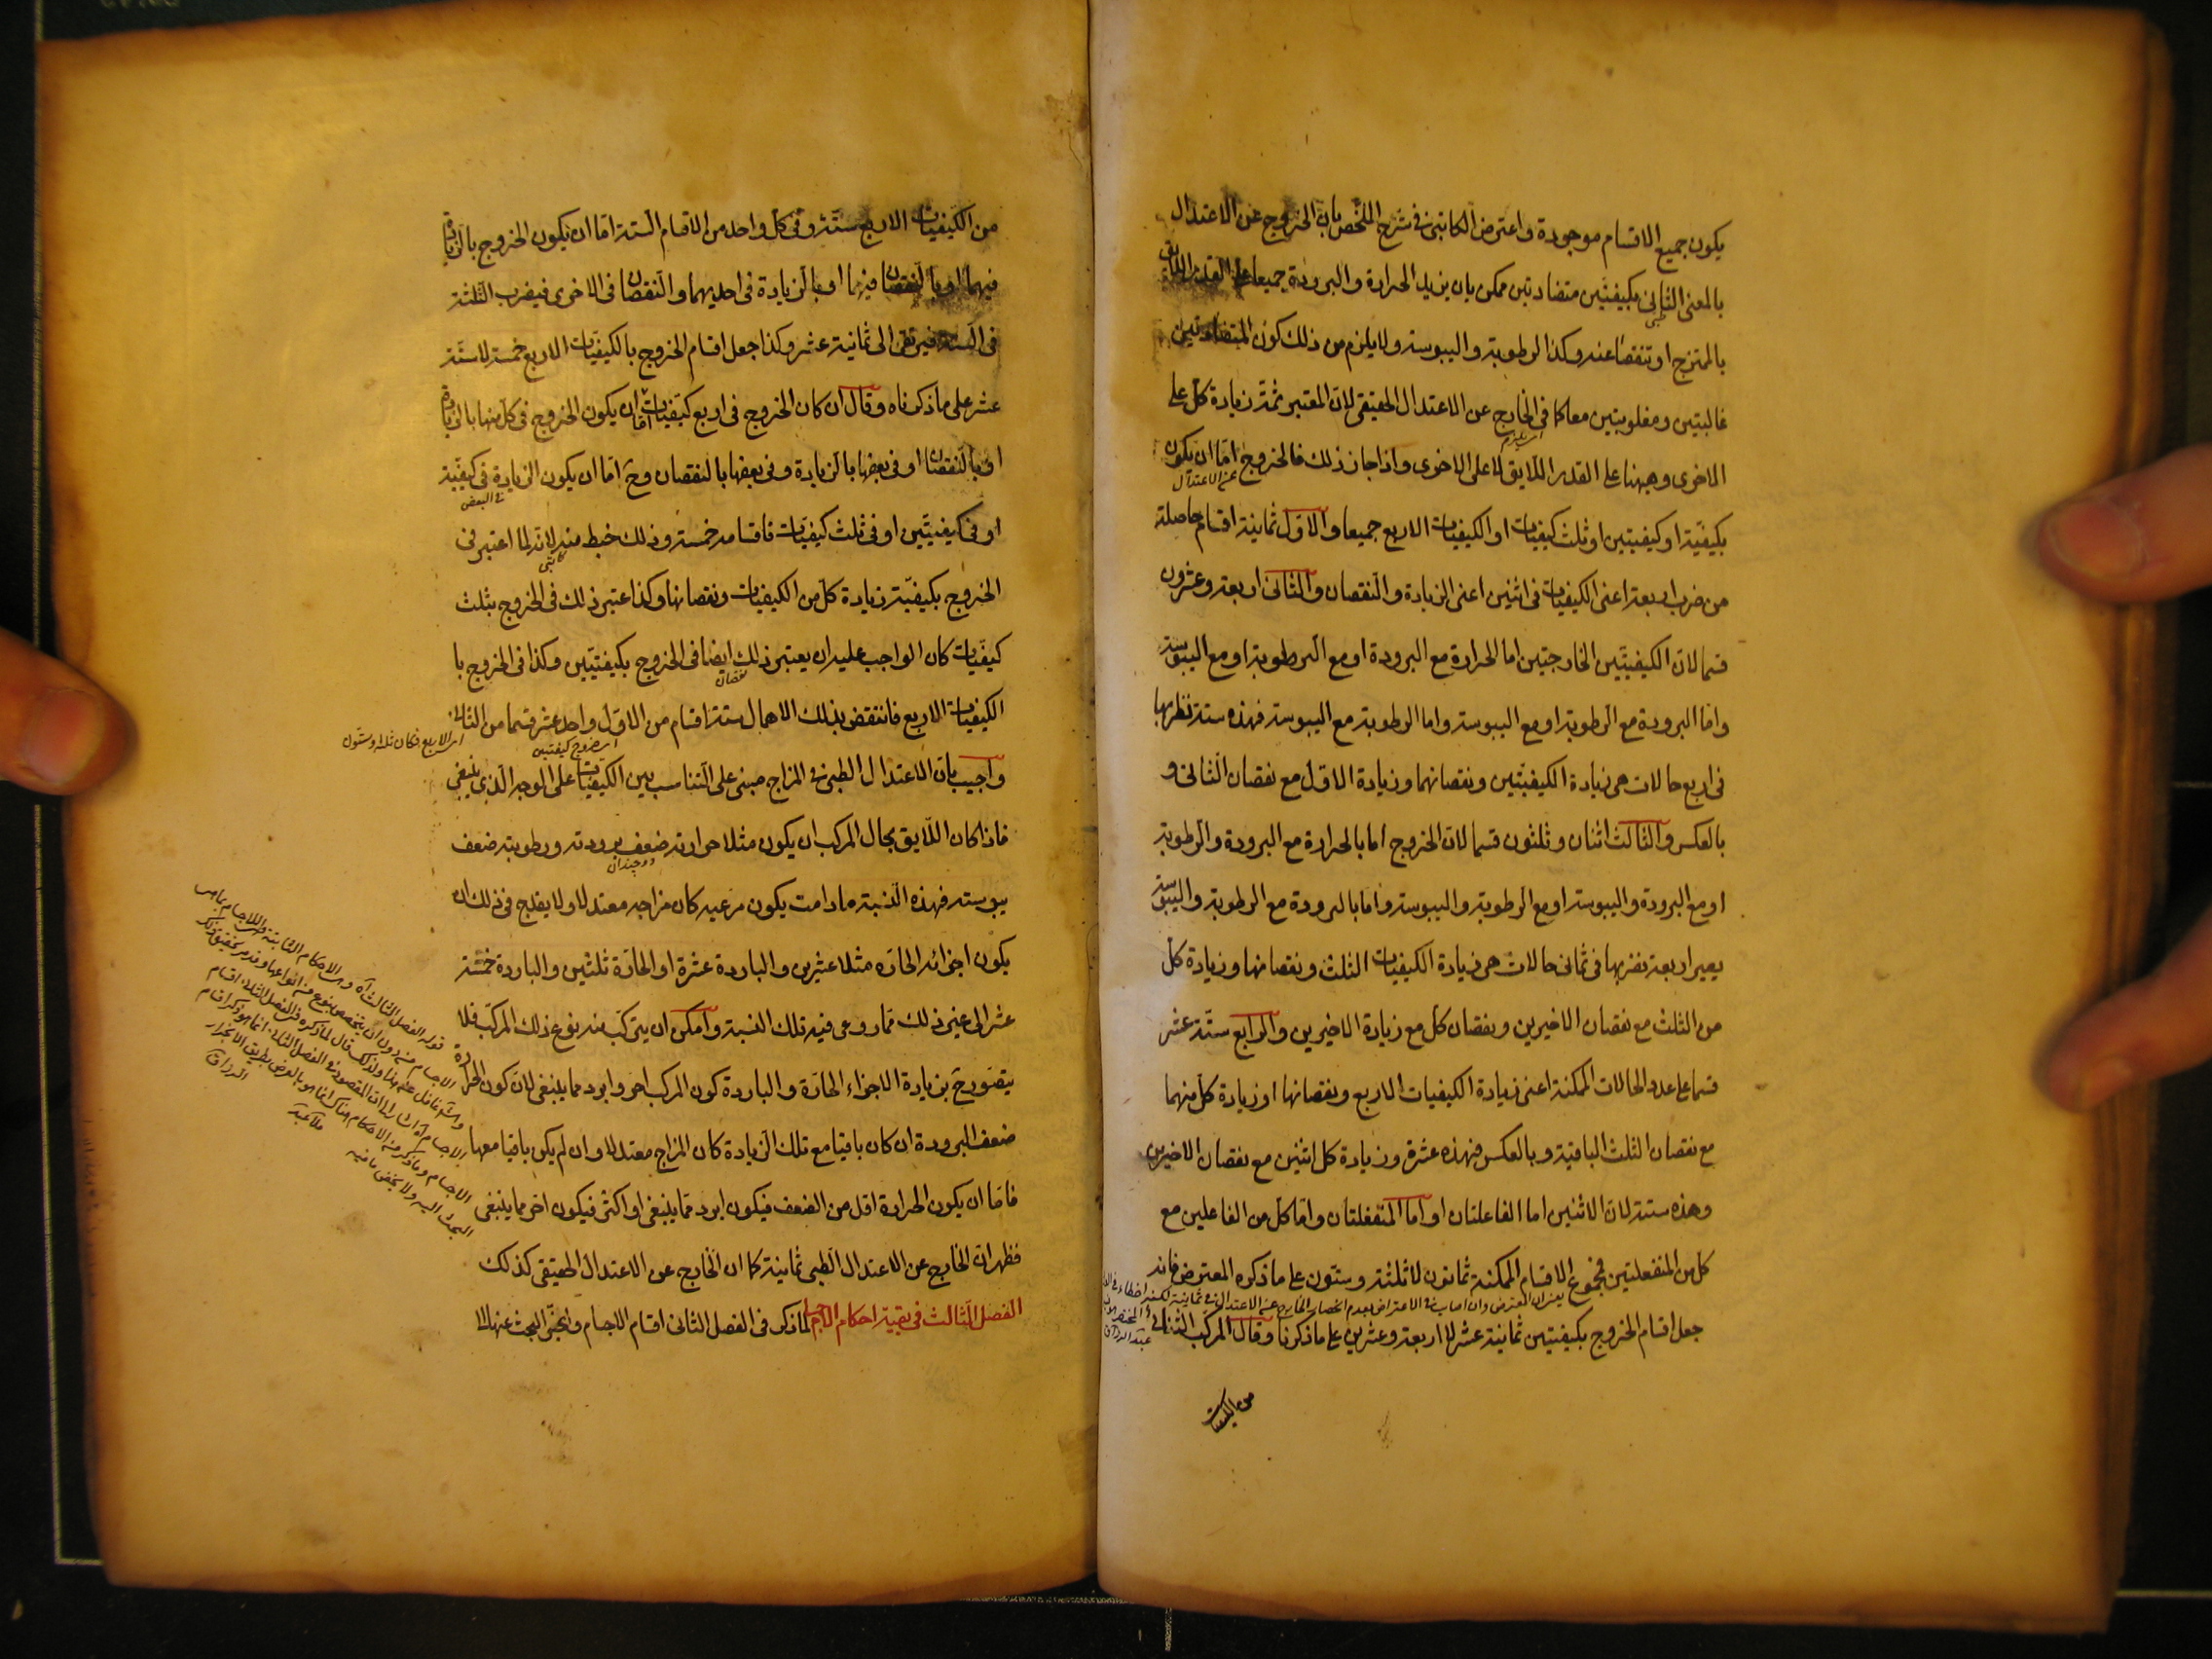 يكون جميع الاقسام موجودة واعترض الكاتبى فى شرح الملخص بان الخروج عن الاعتدال
بالمعنى الثانى بكيفيتين متضادتين ممكن بان يزيد الحرارة والبرودة جميعا على القدر اللائق
بالممتزج او تنقصا عنه وكذا الرطوبة واليبوسة ولا يلزم من ذلك كون المتضادتين
غالبتين ومغلوبتين معا كما فى الخارج عن الاعتدال الحقيقى لان المعتبر ثمة زيادة كل على
الاخرى وههنا على القدر اللايق لا على الاخرى واذا جاز ذلك فالخروج اما ان يكون
عن الاعتدال
بكيفية او كيفيتين او ثلث كيفيات او الكيفيات الاربع جميعا والاول ثمانية اقسام حاصلة
من ضرب اربعة اعنى الكيفيات فى اثنين اعنى الزيادة والنقصان والثانى اربعة وعشرون
قسما لان الكيفيتين الخارجتين اما الحرارة مع البرودة او مع الرطوبة او مع اليبوسة
واما البرودة مع الرطوبة او مع اليبوسة واما الرطوبة مع اليبوسة فهذه ستة نضربها
فى اربع حالات هى زيادة الكيفيتين ونقصانهما وزيادة الاول مع نقصان الثانى و
بالعكس والثالث اثنان وثلثون قسما لان الخروج اما بالحرارة مع البرودة والرطوبة
او مع البرودة واليبوسة او مع الرطوبة واليبوسة واما بالبرودة مع الرطوبة واليبوسة
يصير اربعة نضربها فى ثمانى حالات هى زيادة الكيفيات الثلث ونقصانها وزيادة كل
من الثلث مع نقصان الاخيرين ونقصان كل مع زيادة الاخيرين والرابع ستة عشر
قسما على عدد الحالات الممكنة اعنى زيادة الكيفيات الاربع ونقصانها او زيادة كل منهما
مع نقصان الثلث الباقية وبالعكس فهذه عشرة وزيادة كل اثنين مع نقصان الاخيرين
وهذه ستة لان الاثنين اما الفاعلتان او اما المنفعلتان واما كل من الفاعلين مع
كل من المنفعلتين فمجموع الاقسام الممكنة ثمانون لا ثلثة وستون على ما ذكره المعترض فانه
يعنى ان المعترض وان اصاب فى الاعتراض بعدم انحصار الخارج عن الاعتدال فى ثمانية لكنه اخطاء فى
جعل اقسام الخروج بكيفيتين ثمانية عشر لا اربعة وعشرين على ما ذكرنا وقال المركب الثنائى
عبد الرزاق
من الكيفيات
من الكيفيات الاربع ستة وفى كل واحد من الاقسام الستة اما ان يكون الخروج بالزيادة
فيهما او بالنقصان فيهما او بالزيادة فى احديهما والنقصان فى الاخرى فيضرب الثلثة
فى الستة فيرتقى الى ثمانية عشر وكذا جعل اقسام الخروج بالكيفيات الاربع خمسة لا ستة
عشر على ما ذكرناه وقال ان كان الخروج فى اربع كيفيات اما ان يكون الخروج فى كل منها بالزيادة
او بالنقصان او فى بعضها بالزيادة وفى بعضها بالنقصان وح اما ان يكون الزيادة فى كيفية
فى البعض
او فى كيفيتين او فى ثلث كيفيات فاقسامه خمسة وذلك خبط منه لانه لما اعتبر فى
كاتبى
الخروج بكيفية زيادة كل من الكيفيات ونقصانها وكذا اعتبر ذلك فى الخروج بثلث
كيفيات كان الواجب عليه ان يعتبر ذلك ايضا فى الخروج بكيفيتين وكذا فى الخروج با
نقصان
الكيفيات الاربع فانتقض بذلك الاهمال ستة اقسام من الاول واحد عشر قسما من الثانى
اى خروج كيفيتين
اى الاربع فكان ثلثة وستون
واجيب بان الاعتدال الطبى فى المزاج مبنى على التناسب بين الكيفيات على الوجه الذى ينبغى
فاذا كان اللايق بحال المركب ان يكون مثلا حرارته ضعف برودته ورطوبته ضعف
دو چندان
يبوسته فهذه النسبة ما دامت يكون مرعية كان مزاجه معتدلا ولا يقدح فى ذلك ان
يكون اجزائه الحارة مثلا عشرين والباردة عشرة او الحارة ثلثين والباردة خمسة
عشر الى غير ذلك مما روعى فيه تلك النسبة وامكن ان يتركب منه نوع ذلك المركب فلا
يتصور ح بزيادة الاجزاء الحارة والباردة كون المركب احر وابرد مما ينبغى لان كون الحرارة
ضعف البرودة ان كان باقيا مع تلك الزيادة كان المزاج معتدلا وان لم يكن باقيا معها
فاما ان يكون الحرارة اقل من الضعف فيكون ابرد مما ينبغى او اكثر فيكون احر مما ينبغى
فظهر ان الخارج عن الاعتدال الطبى ثمانية كما ان الخارج عن الاعتدال الحقيقى كذلك
الفصل الثالث فى بقية احكام الاجسام لما ذكر فى الفصل الثانى اقسام الاجسام وانجر البحث عنها الى
قوله الفصل الثالث آه
البحث اليه ولا يخفى ما فيه
ملا عبد
الرزاق